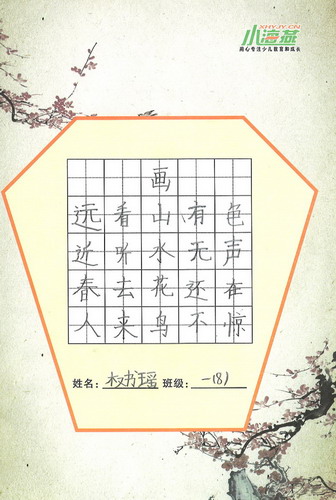 XHYJY.CN
小海燕
用心专注少儿教育和成长
画
远看山有色
近听水无声
春去花还在
人来鸟不惊
姓名:权书瑶 班级:一(8)